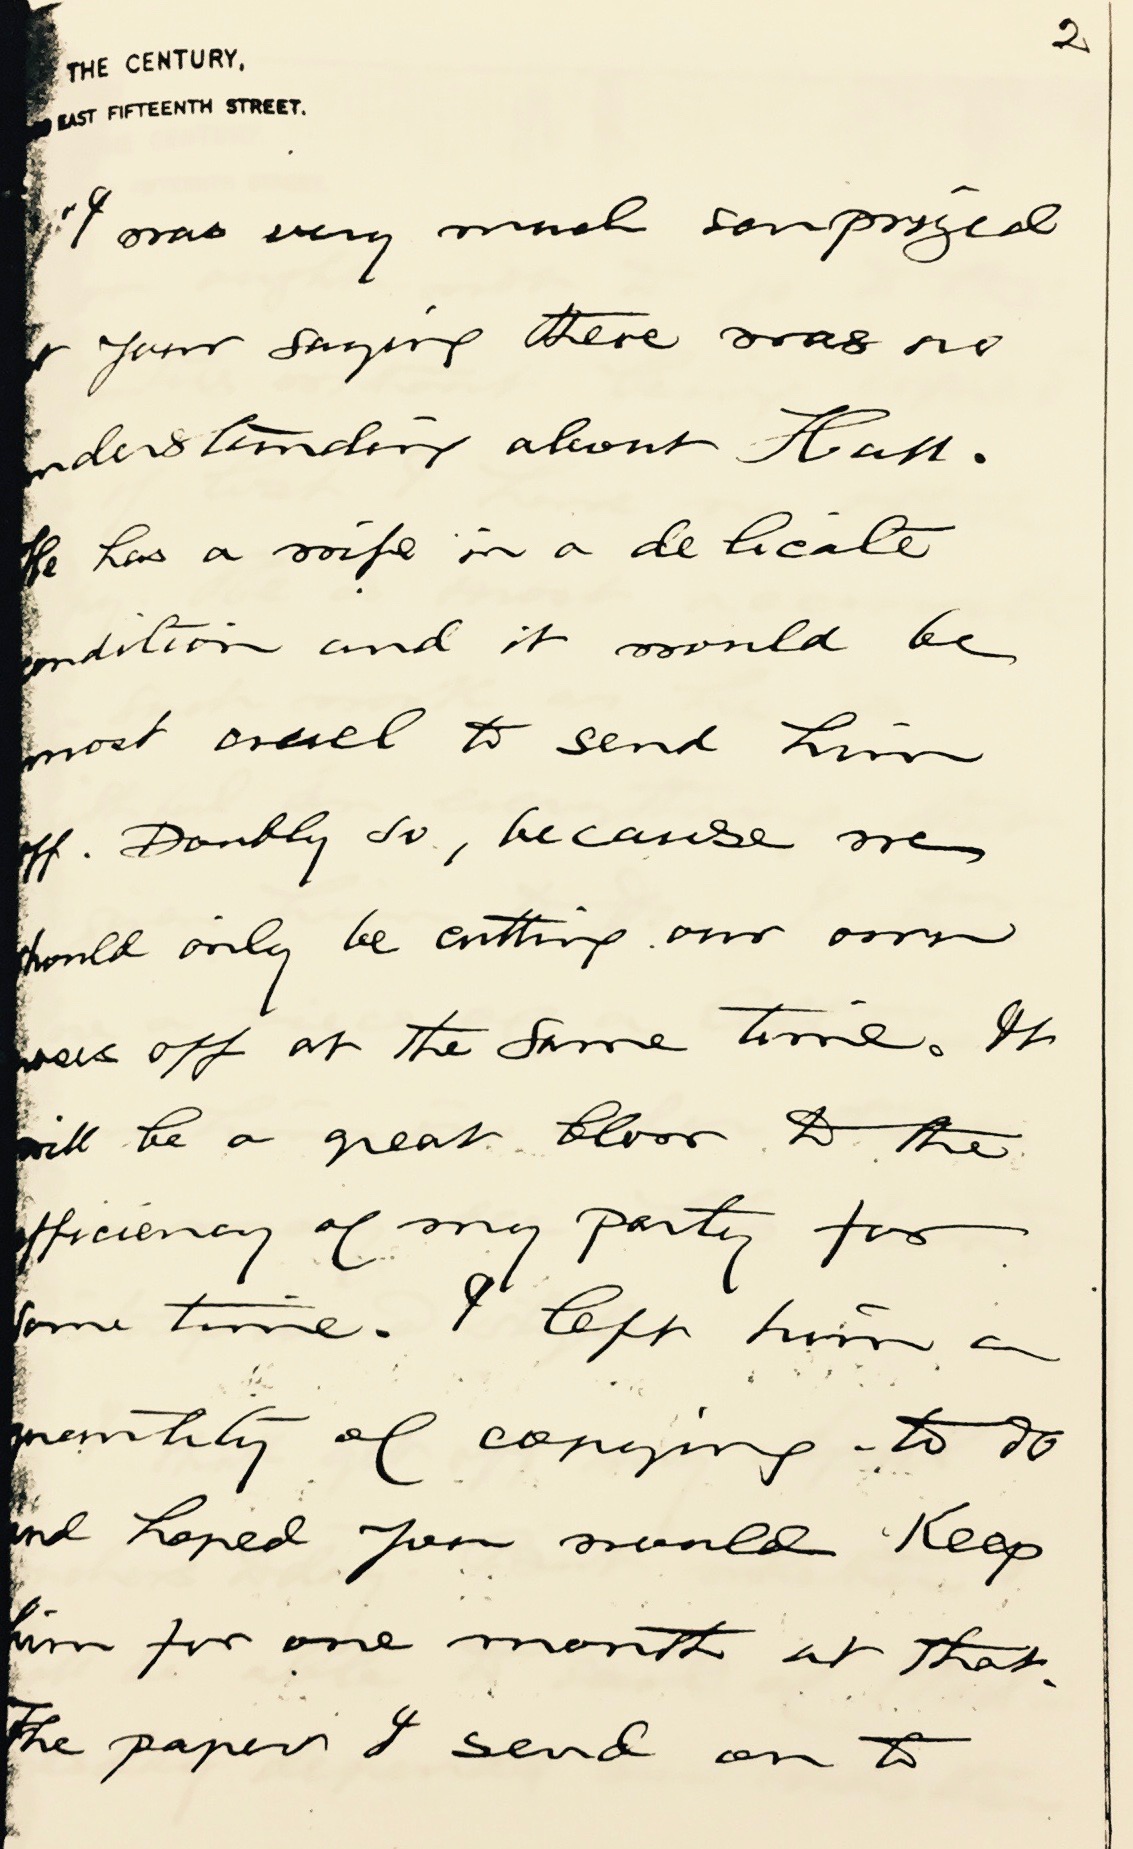 2
THE CENTURY,
EAST FIFTEENTH STREET.
"I was very much surprized
your saying there was no
nderstanding about Hall.
He has a wife in a delicate
ondition and it would be
most cruel to send him
off. Doubly so, because we
should only be cutting our own
off at the same time. It
will be a great blow to the
efficiency of my party for
some time. I left him a
quantity of copying to do
and hoped you would Keep
him for one month at that.
The paper I send on to